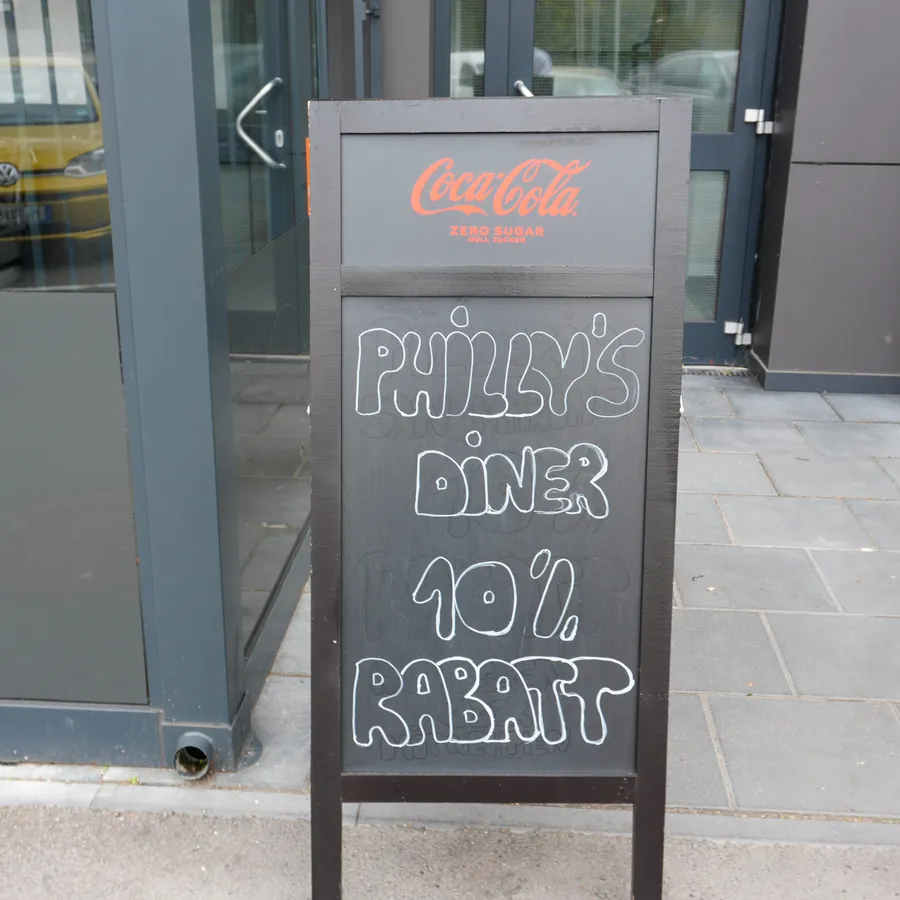 Coca-Cola
ZERO SUGAR
NULL ZUCKER
PHILLY'S
DINER
10%
RABATT